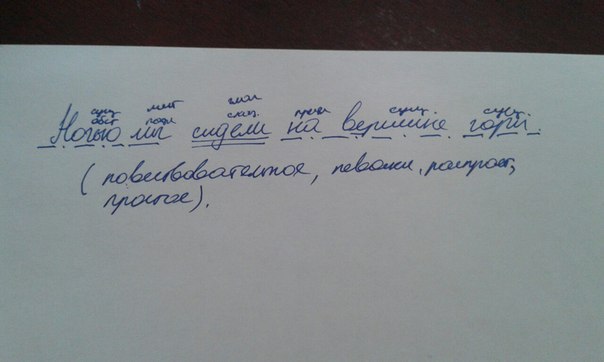 сущ. мест. глаг. предл. сущ. сущ.
обст. подл. сказ.
Ночью мы сидели на вершине горы.
(повествовательное, невоскл., распрост.,
простое).